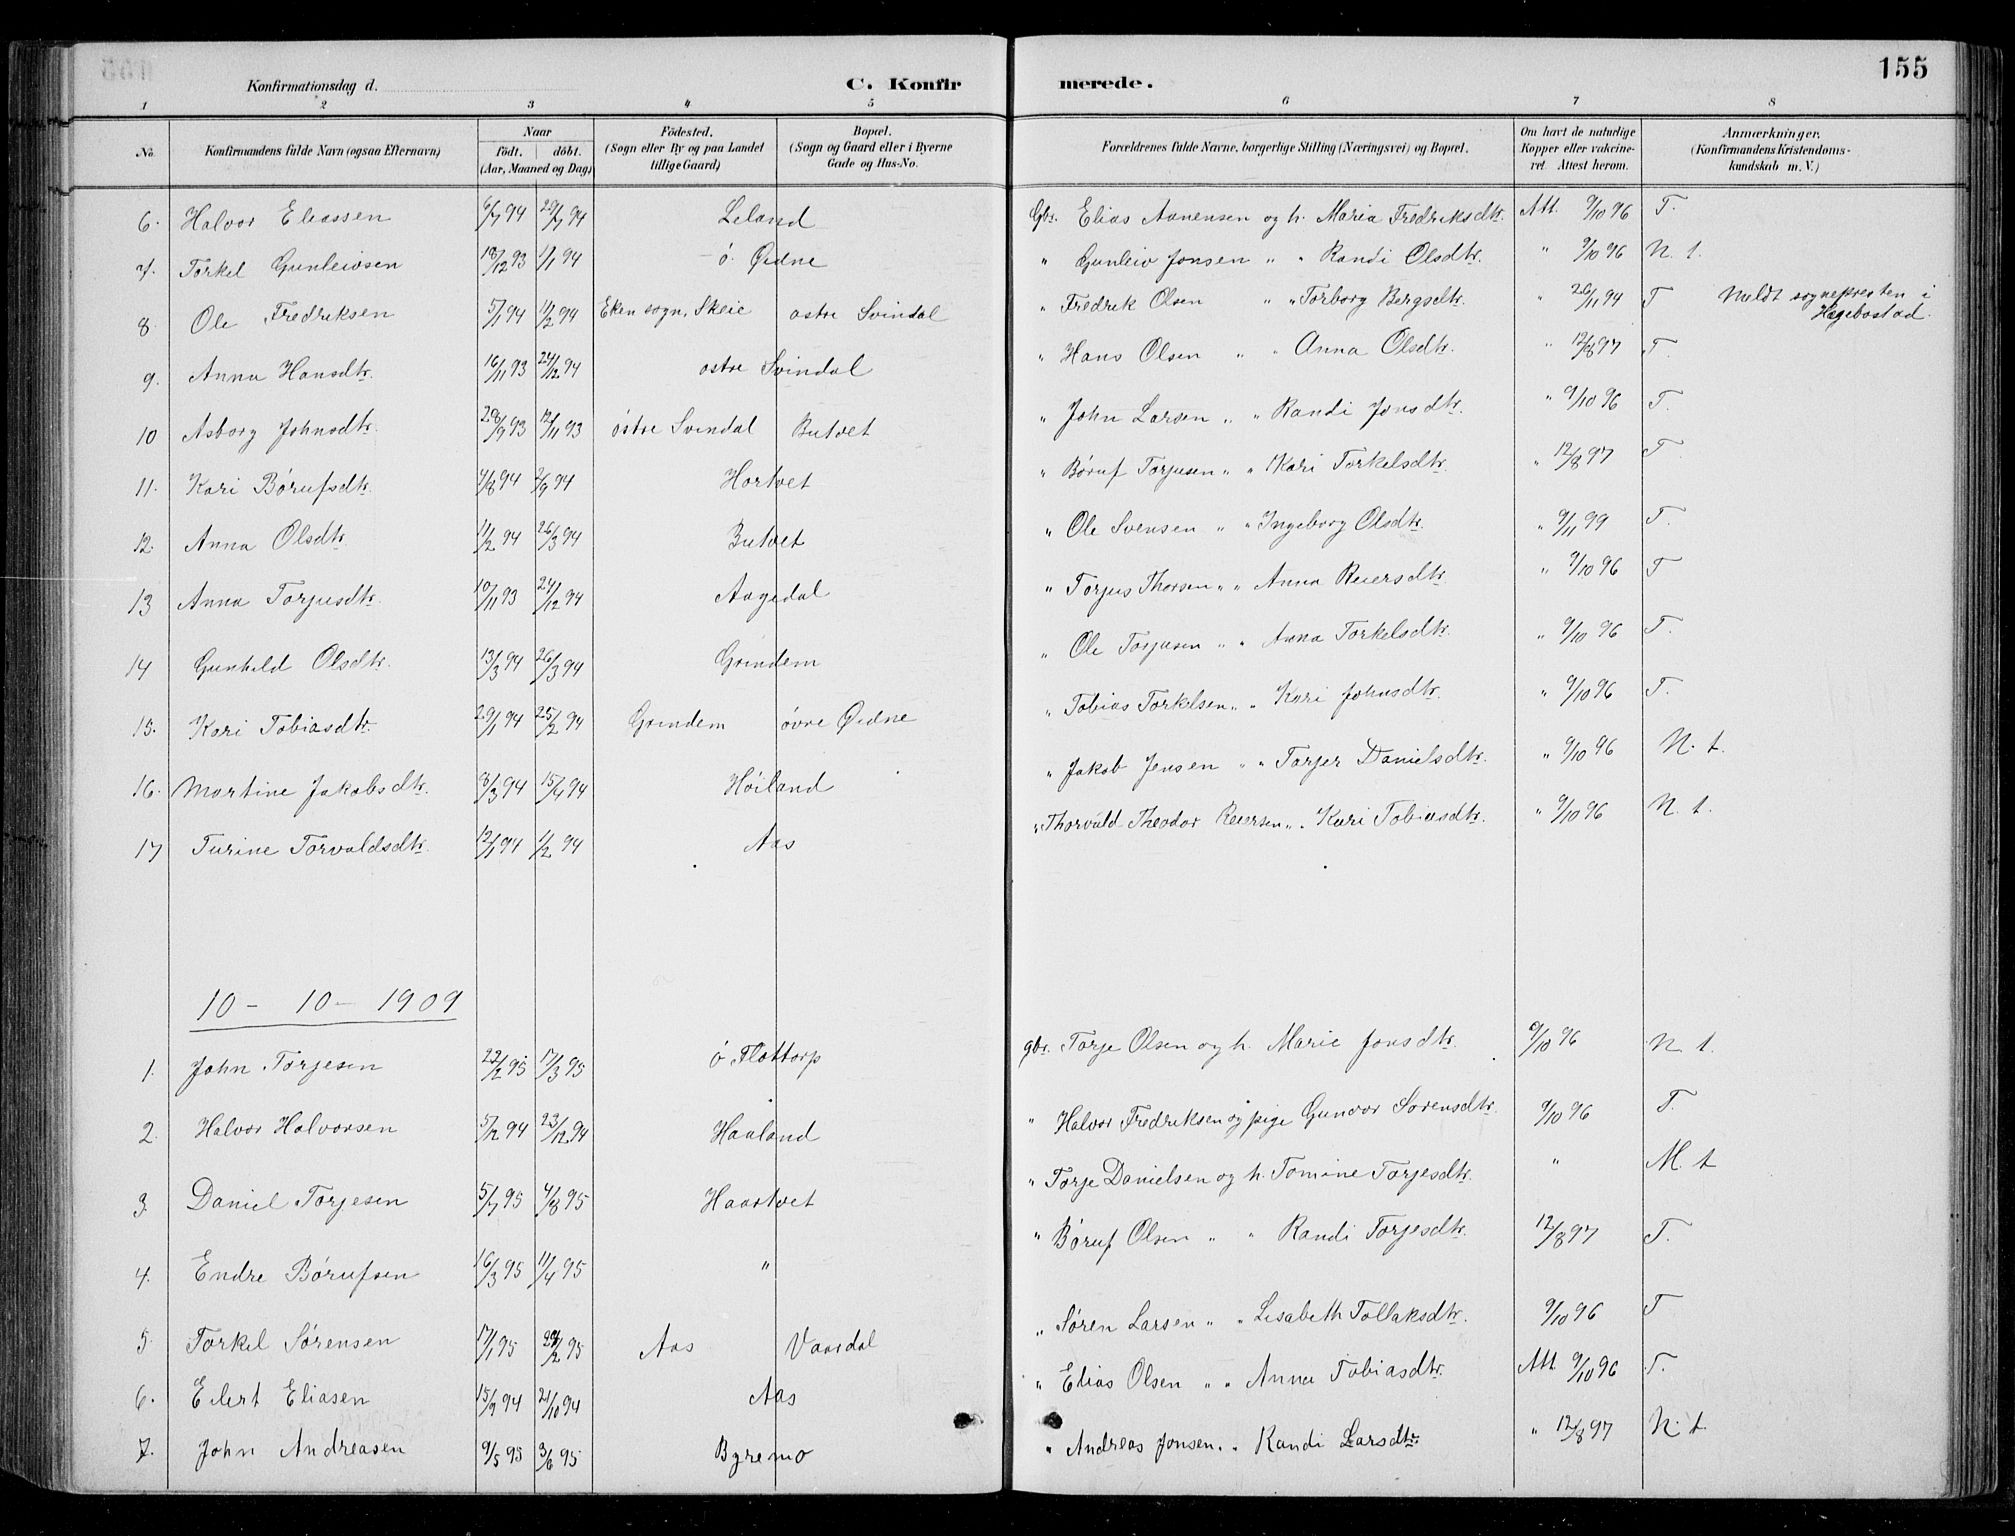 155
Konfirmationsdag d. C. Konfir merede.
1 2 3 4 5 6 7 8
No. Konfirmandens fulde Navn (ogsaa Efternavn) Naar födt. döbt. (Aar, Maaned og Dag) Födested. (Sogn eller By og paa Landet tillige Gaard) Bopæl. (Sogn og Gaard eller i Byerne Gade og Hus-No. Forældrenes fulde Navne, borgerlige Stilling (Næringsvei) og Bopæl. Om havt de naturlige Kopper eller vakcineret. Attest herom. Anmærkninger. (Konfirmandens Kristendomskundskab m. V.)
6. Halvor Eliassen 6/7 94 29/7 94 Leland Gbr. Elias Aanensen og h. Maria Fredriksdtr. Att. 9/10 96 T.
7. Torkel Gunleivsen 18/12 93 1/1 94 ö. Øidne " Gunleiv Jonsen " " Randi Olsdtr. " 9/10 96 N. t.
8. Ole Fredriksen 5/1 94 11/2 94 Eken sogn, Skeie ostre Svindal " Fredrik Olsen " " Torborg Bergsdtr. " 26/11 94 T Meldt sognepresten i Hægebostad.
9. Anna Hansdtr. 16/11 93 24/12 94 ostre Svindal " Hans Olsen " " Anna Olsdtr. " 12/8 97 T.
10 Asborg Johnsdtr. 28/9 93 12/11 93 östre Svindal Butvet " John Larsen " " Randi Jonsdtr. " 9/10 96 T.
11. Kari Börufsdtr. 4/8 94 2/9 94 Hortvet " Böruf Torjusen " " Kari Torkelsdtr. " 12/8 97 T
12. Anna Olsdtr. 11/2 94 26/3 94 Butvet " Ole Svensen " " Ingeborg Olsdtr. " 9/11 99 T.
13 Anna Torjusdtr. 10/11 93 24/12 94 Aagedal " Torjus Thorsen " " Anna Reiersdtr. " 9/10 96 T
14 Gunhild Olsdtr. 13/3 94 26/3 94 Grindem " Ole Torjusen " " Anna Torkelsdtr. " 9/10 96 T.
15. Kari Tobiasdtr. 29/1 94 25/2 94 Grindem övre Øidne " Tobias Torkelsen " " Kari Johnsdtr. " 9/10 96 T.
16. Martine Jakobsdtr. 8/3 94 15/4 94 Höiland " Jakob Jensen " " Torjer Danielsdtr. " 9/10 96 N. t.
17 Turine Torvaldsdtr. 12/1 94 11/2 94 Aas " Thorvald Theodor Reiersen " " Kari Tobiasdtr. " 9/10 96 N. t.
10 - 10 - 1909
1. John Torjesen 22/2 95 17/3 95 ö Flottorp gbr. Torje Olsen og h. Marie Jonsdtr. 9/10 96 N. t.
2. Halvor Halvorsen 5/12 94 23/12 94 Haaland " Halvor Fredriksen og pige Gunvor Sörensdtr. 9/10 96 T.
3. Daniel Torjesen 5/7 95 4/8 95 Haartvet " Torje Danielsen og h. Tomine Torjesdtr. " M. t
4. Endre Börufsen 16/3 95 11/4 95 " " Böruf Olsen " " Randi Torjesdtr. 12/8 97 T.
5. Torkel Sörensen 17/1 95 /2 95 Aas Vaardal " Sören Larsen " " Lisabeth Tollaksdtr. 9/10 96 T
6. Eilert Eliasen 15/9 94 21/10 94 Aas " Elias Olsen " " Anna Tobiasdtr. Att. 9/10 96 T.
7. John Andreasen 9/5 95 3/6 95 Byremo " Andreas Jonsen " " Randi Larsdtr. " 12/8 97 N. t.